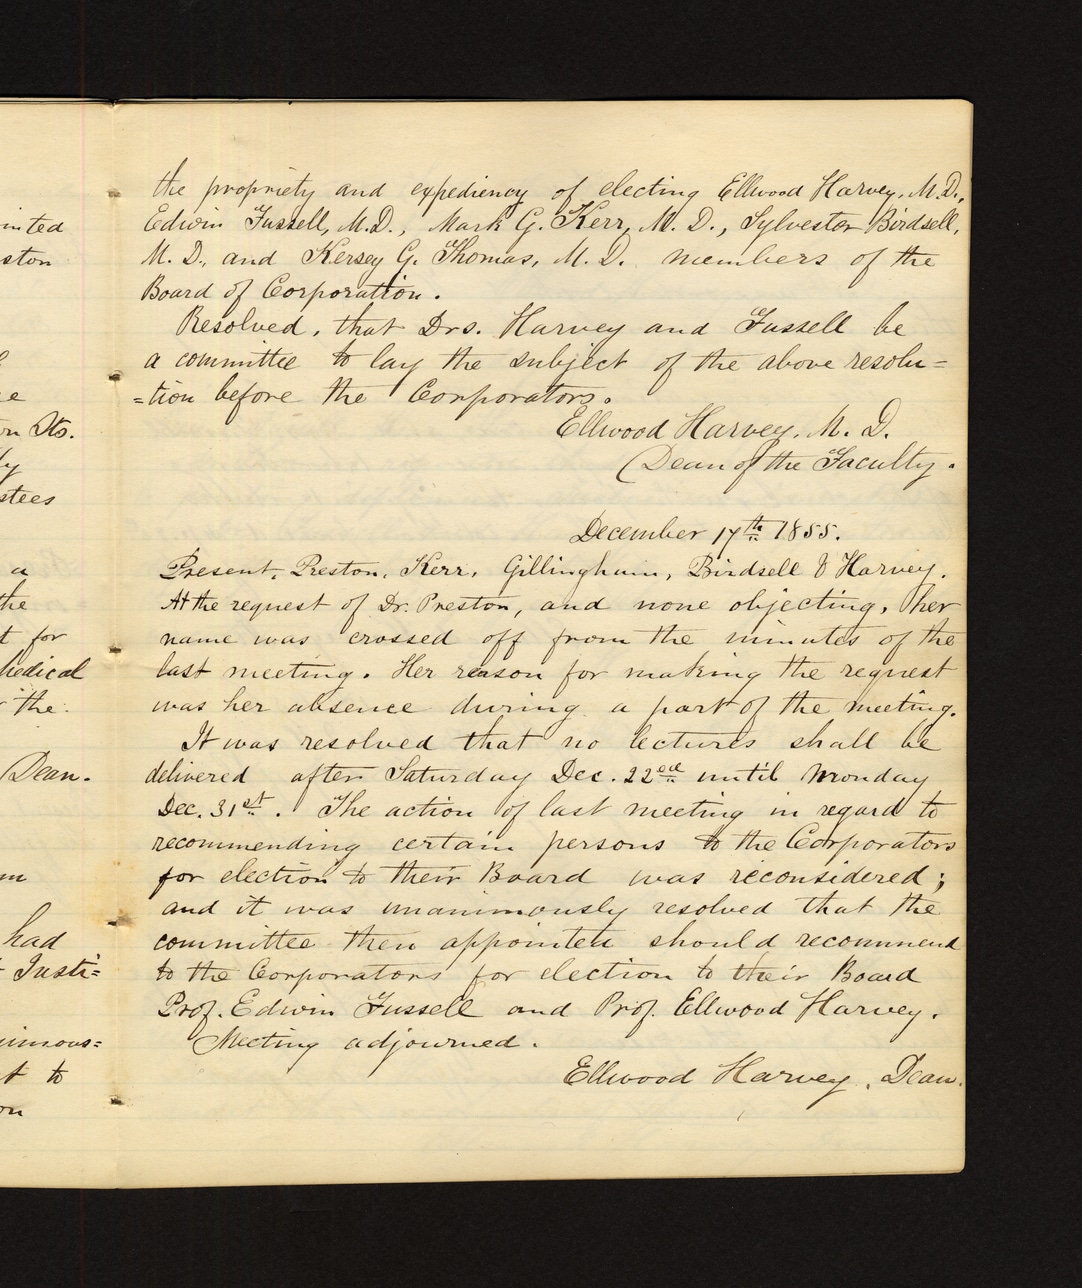 the propriety and expediency of electing Ellwood Harvey, M.D.,
Edwin Fussell, M.D., Mark G. Kerr, M. D., Sylvester Birdsell,
M. D., and Kersey G. Thomas, M. D. members of the
Board of Corporation.
Resolved, that Drs. Harvey and Fussell be
a committee to lay the subject of the above resolu=
=tion before the Corporators.
Ellwood Harvey, M. D.
Dean of the Faculty.
December 17th 1855.
Present, Preston, Kerr, Gillingham, Birdsell & Harvey.
At the request of Dr. Preston, and none objecting, her
name was crossed off from the minutes of the
last meeting. Her reason for making the request
was her absence during a part of the meeting.
It was resolved that no lectures shall be
delivered after Saturday Dec. 22nd until Monday
Dec. 31st. The action of last meeting in regard to
recommending certain persons to the Corporators
for election to their Board was reconsidered;
and it was unanimously resolved that the
committee then appointed should recommend
to the Corporators for election to their Board
Prof. Edwin Fussell and Prof. Ellwood Harvey.
Meeting adjourned.
Ellwood Harvey, Dean.